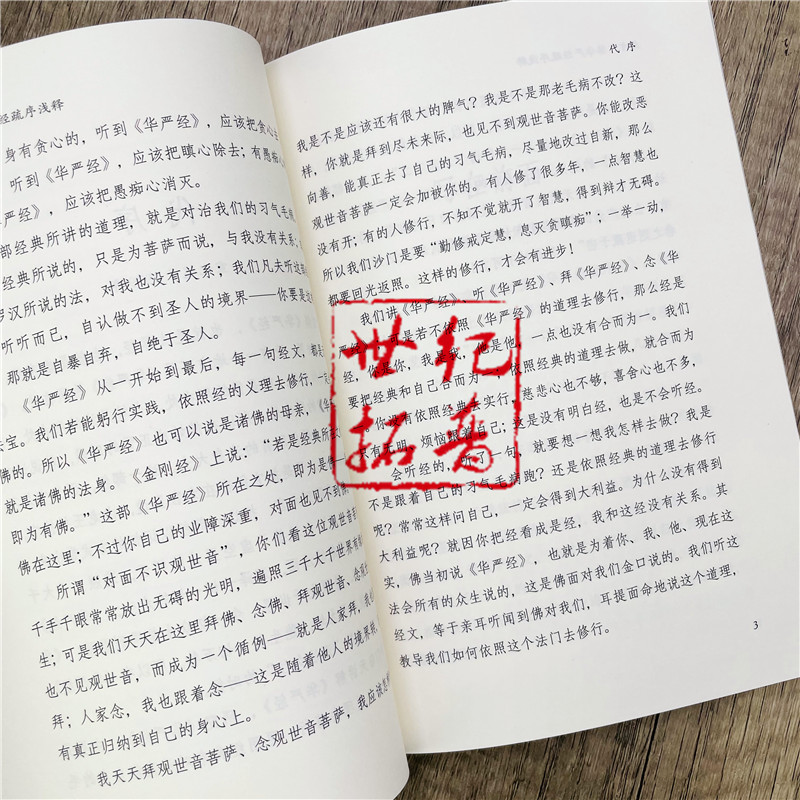 经疏序浅释
身有贪心的，听到《华严经》，应该把贪心去
听到《华严经》，应该把瞋心除去；有愚痴心
严经》，应该把愚痴心消灭。
部经典所讲的道理，就是对治我们的习气毛病
经典所说的，只是为菩萨而说，与我没有关系；
罗汉所说的法，对我也没有关系；我们凡夫听这
听听而已，自认做不到圣人的境界——你要是这
那就是自暴自弃，自绝于圣人。
《华严经》从一开始到最后，每一句经文，都是
法宝。我们若能躬行实践，依照经的义理去修行，一
佛的。所以《华严经》也可以说是诸佛的母亲，《华
就是诸佛的法身。《金刚经》上说：“若是经典所
即为有佛。”这部《华严经》所在之处，即为是佛
佛在这里；不过你自己的业障深重，对面也见不到
所谓“对面不识观世音”，你们看这位观世音
千手千眼常常放出无碍的光明，遍照三千大千世界
生；可是我们天天在这里拜佛、念佛、拜观世音、念观
也不见观世音，而成为一个循例——就是人家拜，我
拜；人家念，我也跟着念——这是随着他人的境界
有真正归纳到自己的身心上。
我天天拜观世音菩萨、念观世音菩萨，我应该
代序
我是不是应该还有很大的脾气？我是不是那老毛病不改？这
样，你就是拜到尽未来际，也见不到观世音菩萨。你能改恶
向善，能真正去了自己的习气毛病，尽量地改过自新，那么
观世音菩萨一定会加被你的。有人修了很多年，一点智慧也
没有开；有的人修行，不知不觉就开了智慧，得到辩才无碍。
所以我们沙门是要“勤修戒定慧，息灭贪瞋痴”；一举一动，
都要回光返照。这样的修行，才会有进步！
我们讲《华严经》、听《华严经》、拜《华严经》、念《华
严经》，可是若不依照《华严经》的道理去修行，那么经是
经，你是你，我是我，他是他，一点也没有合而为一。我们
要把经典和自己合而为一，依照经典的道理去做，就合而为
一。你没有依照经典去实行，慈悲心也不够，喜舍心也不多，
只有无明、烦恼跟着自己；这是没有明白经，也是不会听经。
会听经的，听了一句，就要想一想我怎样去做？我是
不是跟着自己的习气毛病跑？还是依照经典的道理去修行
呢？常常这样问自己，一定会得到大利益。为什么没有得到
大利益呢？就因你把经看成是经，我和这经没有关系。其
实，佛当初说《华严经》，也就是为着你、我、他、现在这
法会所有的众生说的，这是佛面对我们金口说的。我们听这
经文，等于亲耳听闻到佛对我们，耳提面命地说这个道理，
教导我们如何依照这个法门去修行。
3
世纪
拓普